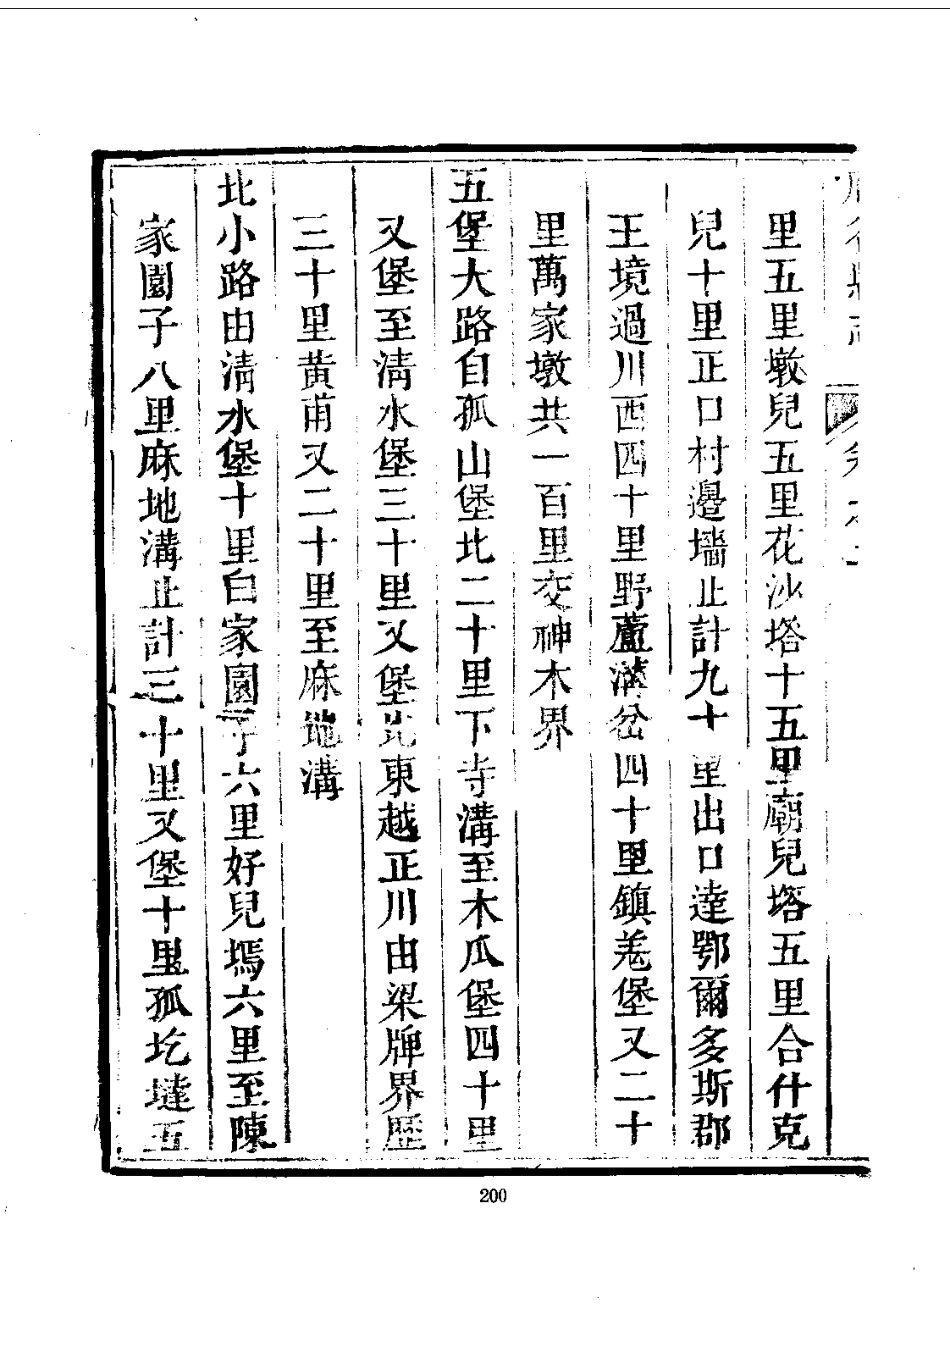 里五里墩兒五里花沙塔十五里廟兒塔五里合什克
兒十里正口村邊墻止計九十里出口達鄂爾多斯郡
王境過川西四十里野蘆溝岔四十里鎮羌堡又二十
里萬家墩共一百里交神木界
五堡大路自孤山堡北二十里下寺溝至木瓜堡四十里
又堡至清水堡三十里又堡北東越正川由梁牌界歷
三十里黄甫又二十里至麻地溝
北小路由清水堡十里白家園子六里好兒墕六里至陳
家園子八里麻地溝止計三十里又堡十里孤圪墶五
200